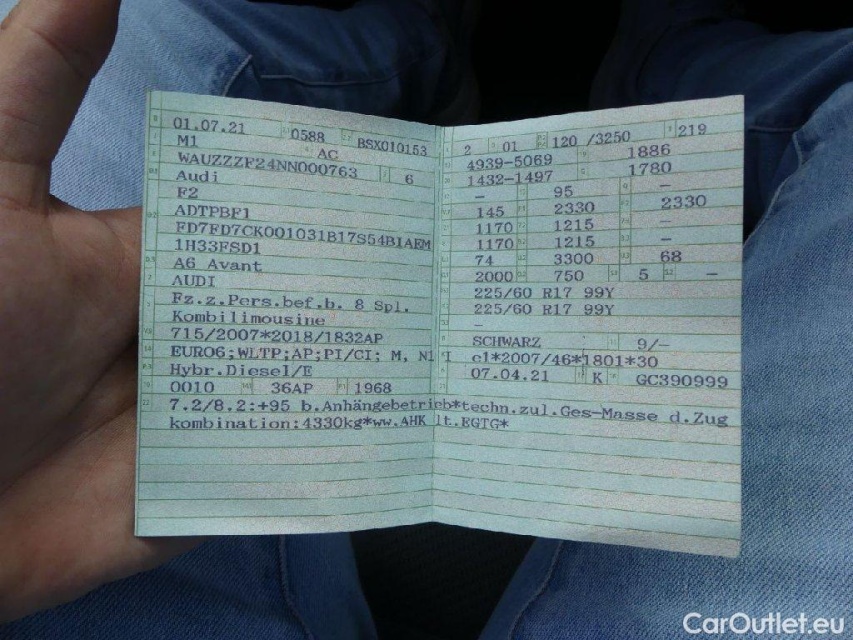 01.07.21 0588 BSX010153
M1 AC
WAUZZZF24NN000763 6
Audi
F2
ADTPBF1
FD7FD7CK001031B17S54BIAEM
1H33FSD1
A6 Avant
AUDI
Fz.z.Pers.bef.b. 8 Spl.
Kombilimousine
715/2007*2018/1832AP
EURO6;WLTP;AP;PI/CI; M, N1 I
Hybr.Diesel/E
0010 36AP 1968
2 01 120 /3250 219
4939-5069 1886
1432-1497 1780
– 95 –
145 2330 2330
1170 1215 –
1170 1215 –
74 3300 68
2000 750 5 –
225/60 R17 99Y
225/60 R17 99Y
–
SCHWARZ 9/–
e1*2007/46*1801*30
07.04.21 K GC390999
7.2/8.2:+95 b.Anhängebetrieb*techn.zul.Ges-Masse d.Zug
kombination:4330kg*ww.AHK lt.EGTG*
CarOutlet.eu